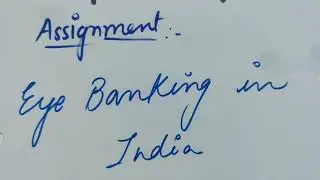 Assignment:-
Eye Banking in
India